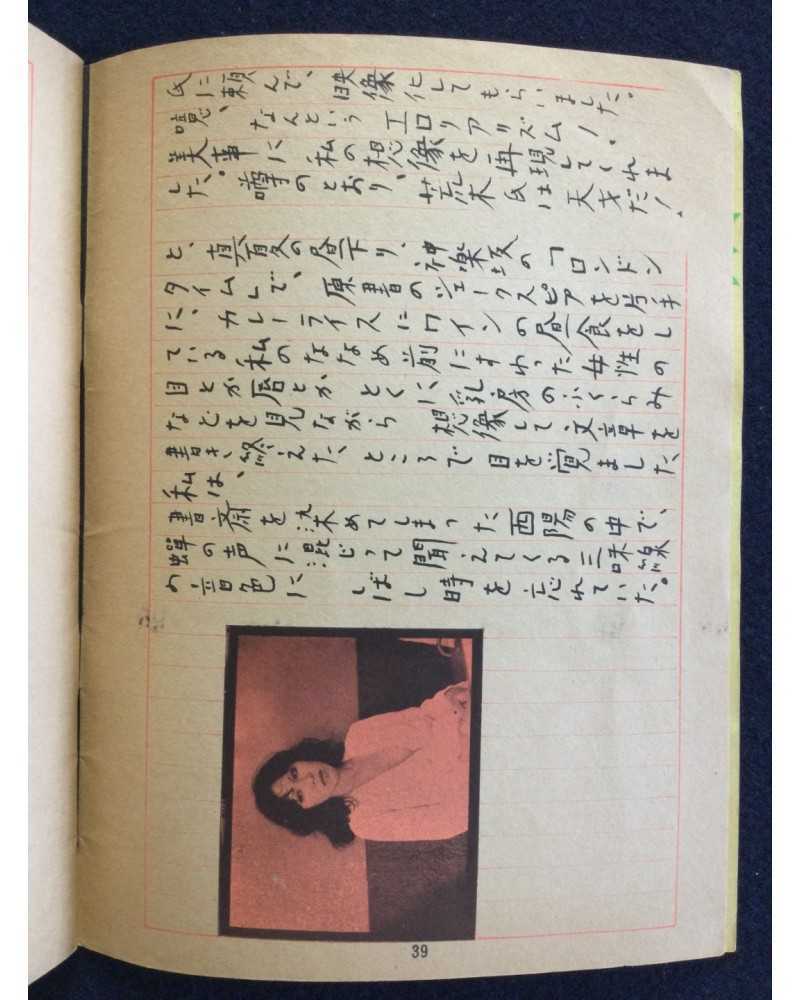 氏に頼んで、映像化してもらいました。
噫、なんという エロリアリズム！
美事に 私の想像を再現してくれま
した。噂のとおり、荒木氏は天才だ！
と、真夏の昼下り、神楽坂の「ロンドン
タイム」で、原書のシェークスピアを片手
に、カレーライスにワインの昼食をし
ている私のななめ前にすわった女性の
目とか唇とか とくに乳房のふくらみ
などを見ながら 想像して文章を
書き終えた、ところで目を覚ました
私は、
書斎を染めてしまった西陽の中で、
蝉の声に混じって聞えてくる三味線
の音色に しばし時を忘れていた。
39